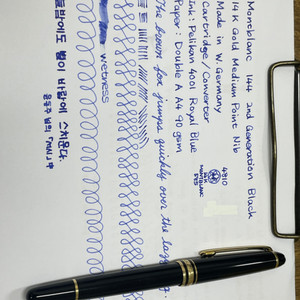 Monoblanc 144 2nd Generation Black
14K Gold Medium Point Nib
Made in W. Germany
Cartridge / Converter
Ink: Pelikan 4001 Royal Blue
Paper: Double A A4 90 gsm
The brown fox jumps quickly over the lazy
wetness
늘밤에도 별이 바람에 스치운다.
윤동주 님의 「서시」中
4810
14K
MONTBLANC
585